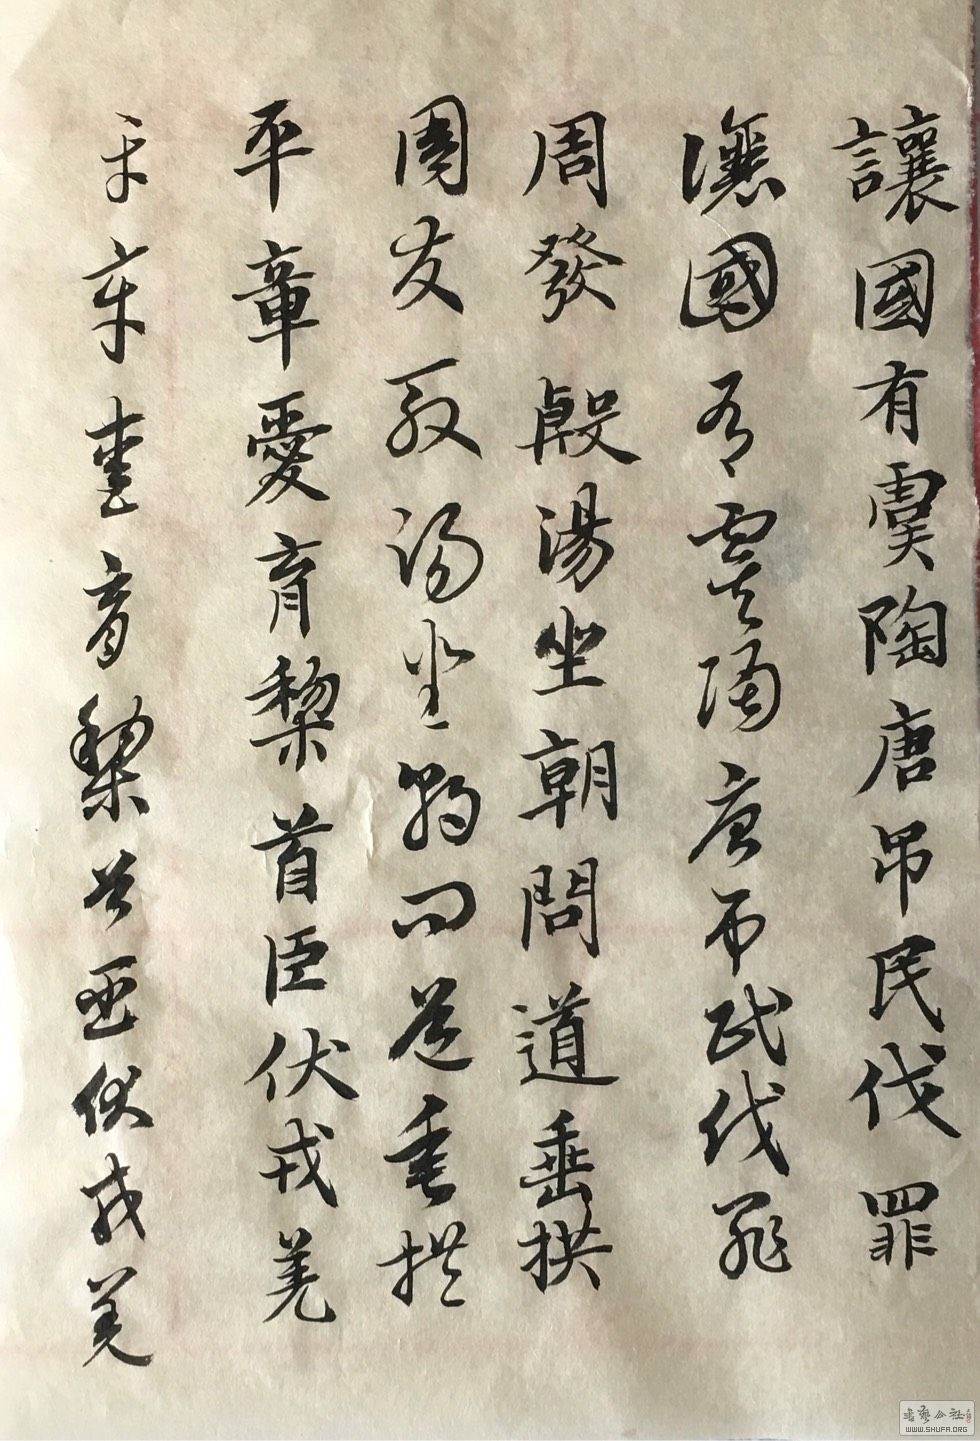 讓國有虞陶唐吊民伐罪
讓國有虞陶唐吊民伐罪
周發殷湯坐朝問道垂拱
周發殷湯坐朝問道垂拱
平章愛育黎首臣伏戎羌
平章愛育黎首臣伏戎羌
WWW.SHUFA.ORG